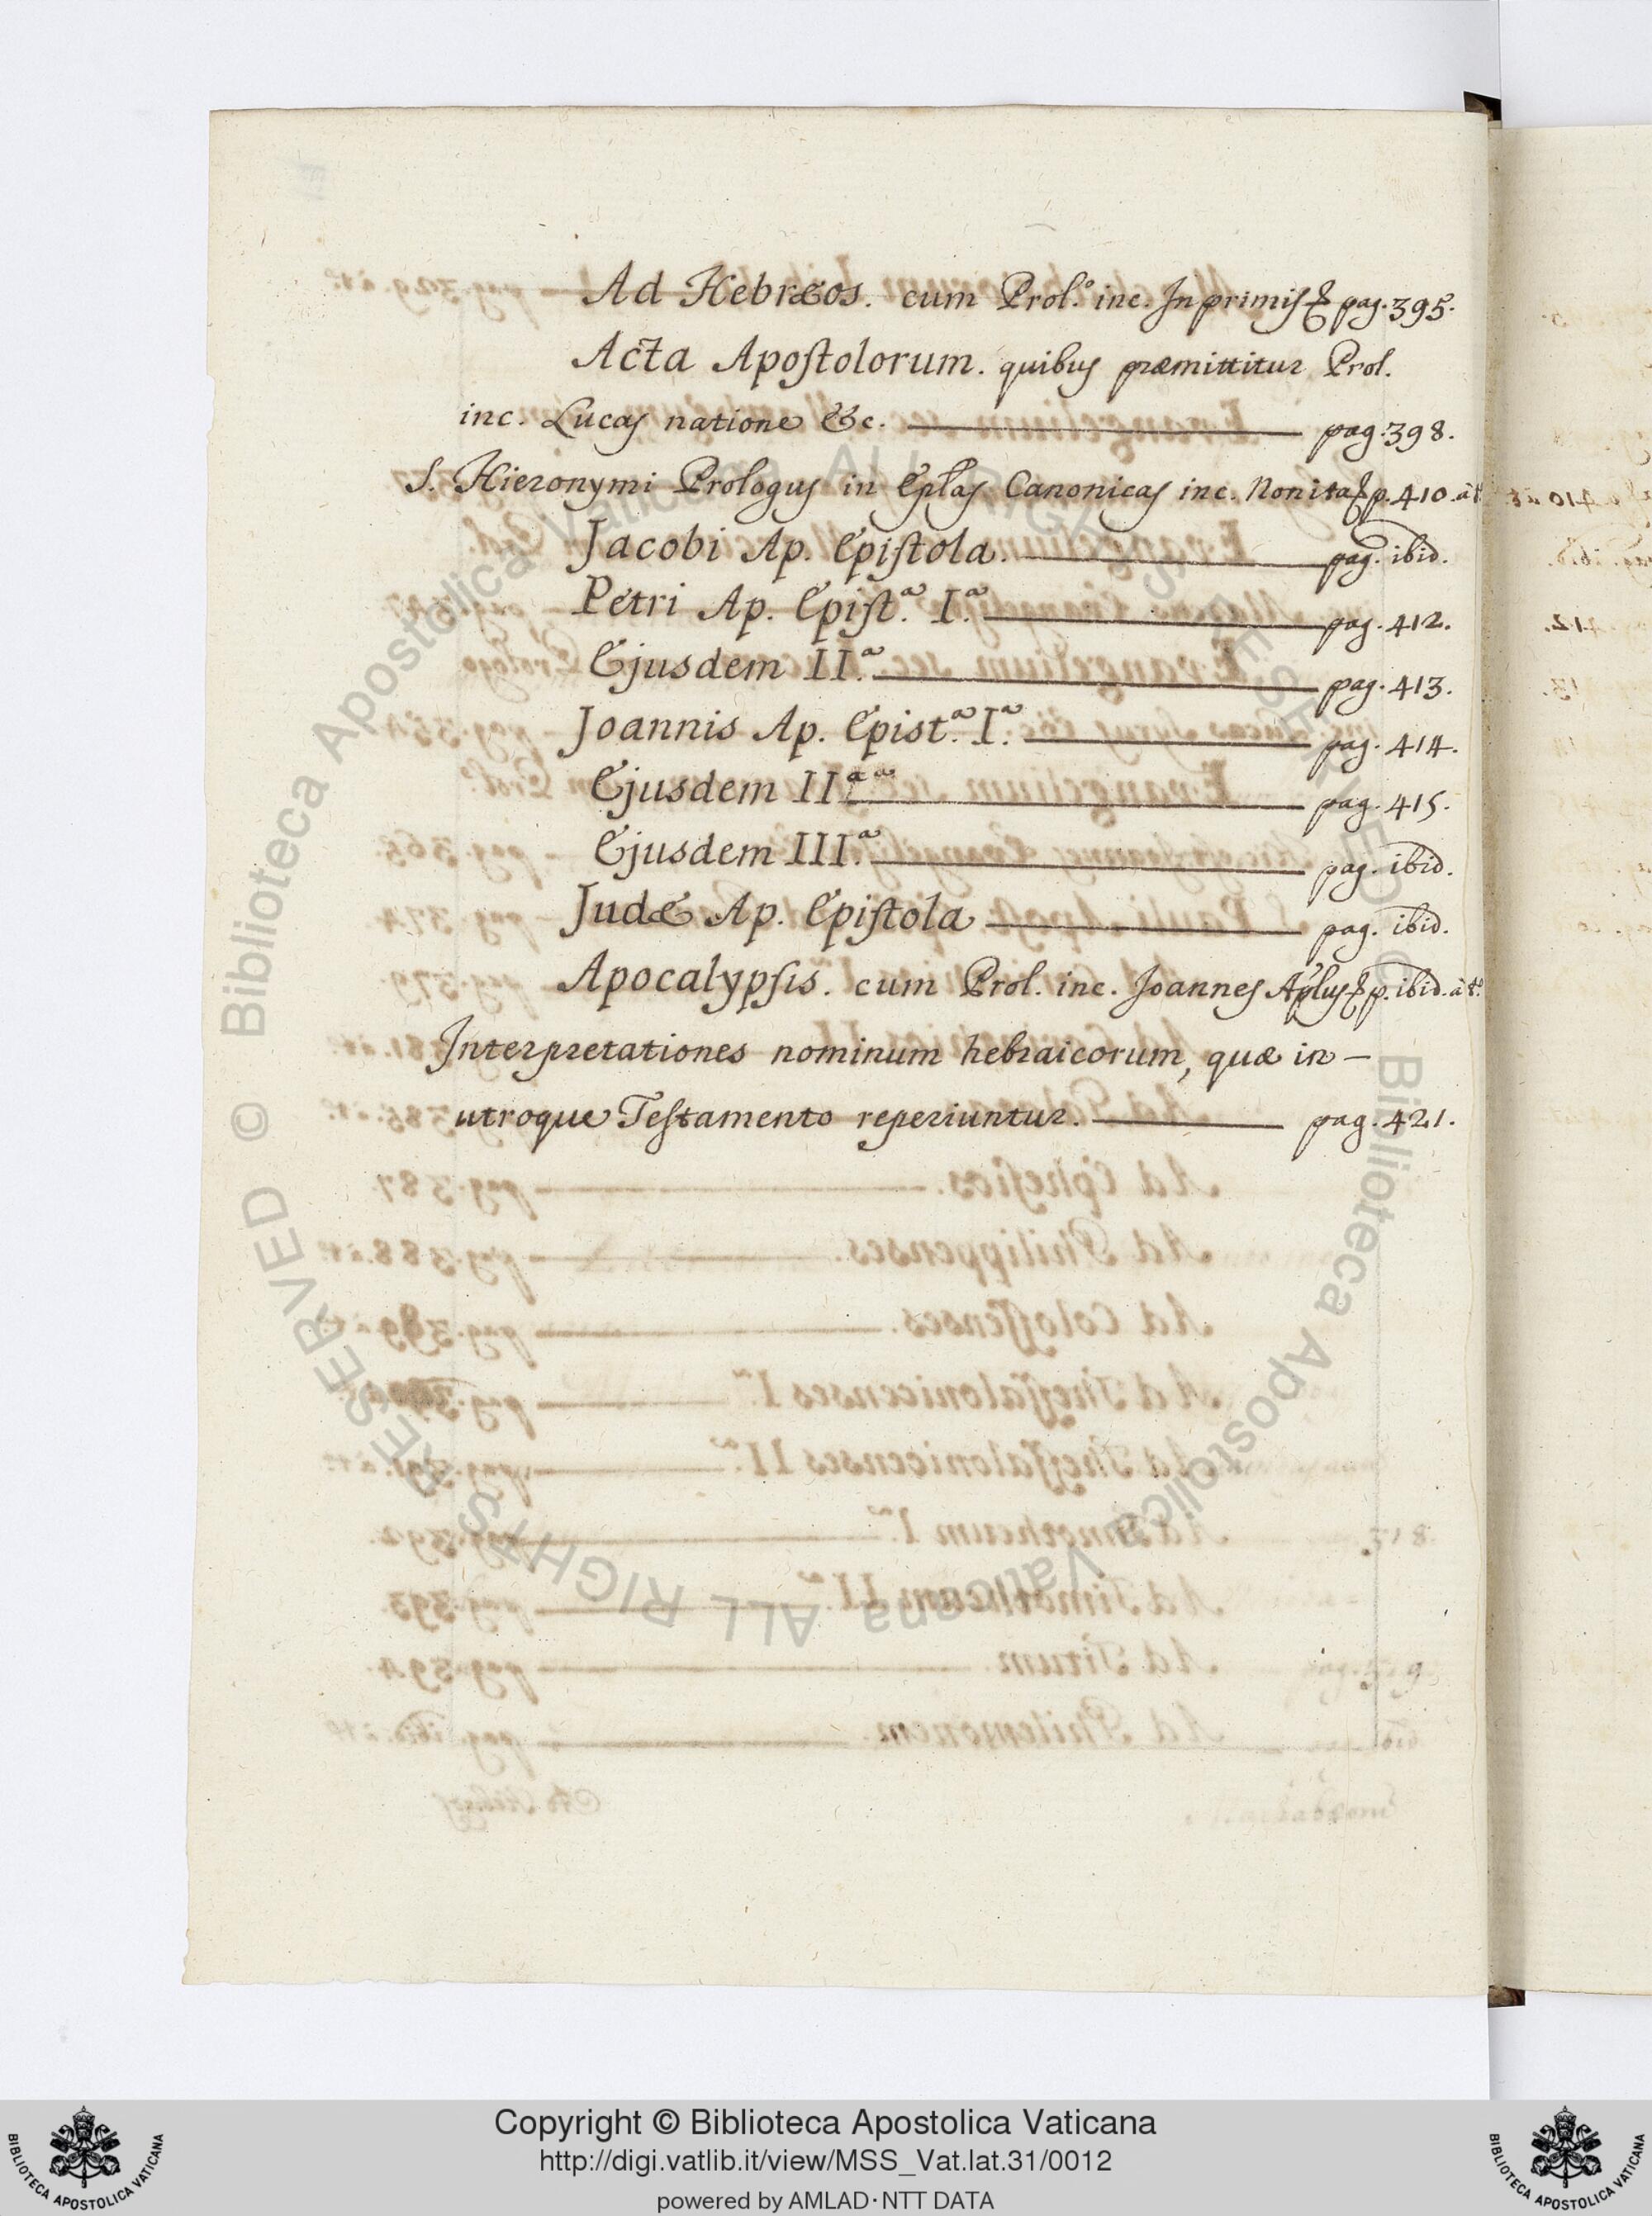 Ad Hebræos. cum Prol.º inc. In primis & pag. 395.
Acta Apostolorum. quibus præmittitur Prol.
inc. Lucas natione &c. pag. 398.
S. Hieronymi Prologus in Eplas Canonicas inc. Non ita & p. 410. à t.
Jacobi Ap. Epistola. pag. ibid.
Petri Ap. Epist.ª I.ª pag. 412.
Ejusdem II.ª pag. 413.
Joannis Ap. Epist.ª I.ª pag. 414.
Ejusdem II.ª pag. 415.
Ejusdem III.ª pag. ibid.
Judæ Ap. Epistola pag. ibid.
Apocalypsis. cum Prol. inc. Joannes Aplus & p. ibid. à t.º
Interpretationes nominum hebraicorum, quæ in
utroque Testamento reperiuntur. pag. 421.
Copyright © Biblioteca Apostolica Vaticana
http://digi.vatlib.it/view/MSS_Vat.lat.31/0012
powered by AMLAD·NTT DATA
BIBLIOTECA APOSTOLICA VATICANA
BIBLIOTECA APOSTOLICA VATICANA
© Biblioteca Apostolica Vaticana ALL RIGHTS RESERVED
© Biblioteca Apostolica Vaticana ALL RIGHTS RESERVED